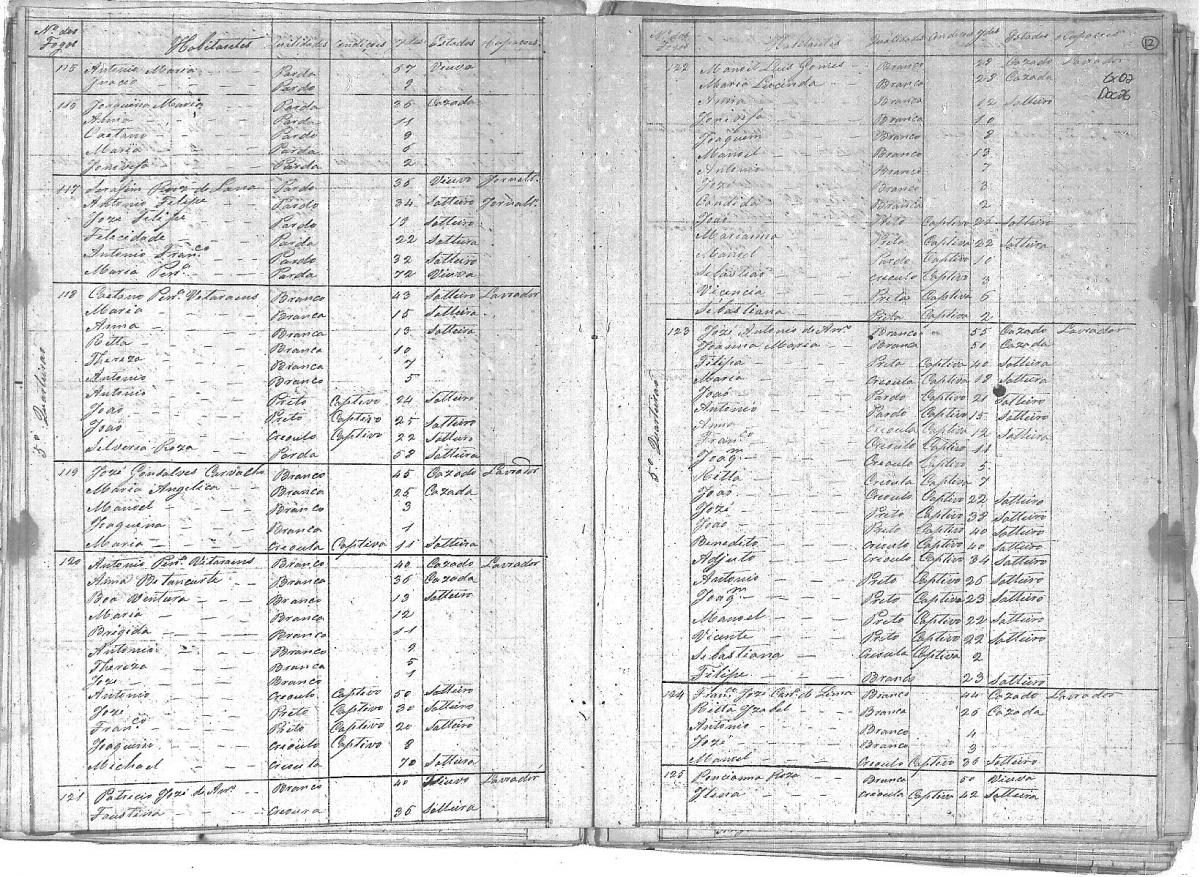 Nº dos Fogos Habitantes Qualidades Condições Ydes Estados Ocupações
115 Antonia Maria Parda 57 Viuva
Ignacio Pardo 9
116 Joaquina Maria Parda 36 Cazada
Anna Parda 11
Caetano Pardo 9
Maria Parda 6
Jenovefa Parda 2
117 Serafim Pardo 36 Viuvo Jornalr.
Antonio Filipe Pardo 34 Solteiro Jornalr.
Joze Filipe Pardo 19 Solteiro
Felicidade Parda 22 Solteira
Antonio Fran.co Pardo 32 Solteiro
Maria Per.a Parda 72 Viuva
118 Caetano Per.a Branco 43 Solteiro Lavrador
Maria Branca 15 Solteira
Anna Branca 13 Solteira
Ritta Branca 10
Thereza Branca 7
Antonio Branco 5
Antonio Preto Captivo 24 Solteiro
João Preto Captivo 25 Solteiro
João Creoulo Captivo 22 Solteiro
Silveria Roza Parda 58 Solteira
3º Quarteirão
119 Joze Gonsalves Carvalho Branco 45 Cazado Lavrador
Maria Angelica Branca 25 Cazada
Manoel Branco 3
Joaquina Branca 1
Maria Creoula Captiva 11 Solteira
120 Antonio Per.a Branco 40 Cazado Lavrador
Anna Betancurte Branca 36 Cazada
Boa Ventura Branco 13 Solteiro
Maria Branca 12
Brigida Branca 11
Antonio Branco 9
Thereza Branca 5
Joze Branco 1
Antonio Creoulo Captivo 50 Solteiro
Joze Preto Captivo 30 Solteiro
Fran.co Preto Captivo 20 Solteiro
Joaquim Creoulo Captivo 8
Michael Creoula 70 Solteira
121 Patricio Joze de Branco 40 Viuvo Lavrador
Faustina Creoura 36 Solteira
Nº dos Fogos Habitantes Qualidades Condições Ydes Estados Ocupações
12
122 Manoel Luis Gomes Branco 28 Cazado Lavrador
Maria Lucinda Branca 28 Cazada
Cx 07
Doc 26
Anna Branca 12 Solteira
Jenovefa Branca 10
Joaquim Branco 8
Manoel Branco 13
Antonio Branco 7
Joze Branco 3
Candida Branca 2
João Preto Captivo 26 Solteiro
Marianna Preta Captiva 22 Solteira
Manoel Pardo Captivo 10
Sebastião Creoulo Captivo 3
Vicencia Preta Captiva 6
Sebastiana Preta Captiva 2
123 Joze Antonio de Branco 55 Cazado Lavrador
Joanna Maria Branca 50 Cazada
Filipa Preta Captiva 40 Solteira
Maria Creoula Captiva 18 Solteira
João Pardo Captivo 21 Solteiro
Antonio Pardo Captivo 15 Solteiro
Anna Creoula Captiva 12 Solteira
Fran.co Creoulo Captivo 11
Joaq.m Creoulo Captivo 5
Ritta Creoula Captiva 7
João Creoulo Captivo 22 Solteiro
Joze Preto Captivo 38 Solteiro
João Preto Captivo 40 Solteiro
Benedito Creoulo Captivo 40 Solteiro
Adjuto Creoulo Captivo 34 Solteiro
Antonio Preto Captivo 26 Solteiro
Joaq.m Preto Captivo 23 Solteiro
Manoel Preto Captivo 22 Solteiro
Vicente Preto Captivo 22 Solteiro
Sebastiana Creoula Captiva 2
Filipe Branco 23 Solteiro
5º Quarteirão
124 Fran.co Joze de Lima Branco 44 Cazado Lavrador
Ritta Yzabel Branca 26 Cazada
Antonio Branco 4
Joze Branco 3
Manoel Creoulo Captivo 36 Solteiro
125 Ponciana Roza Branca 50 Viuva
Creoula Captiva 42 Solteira